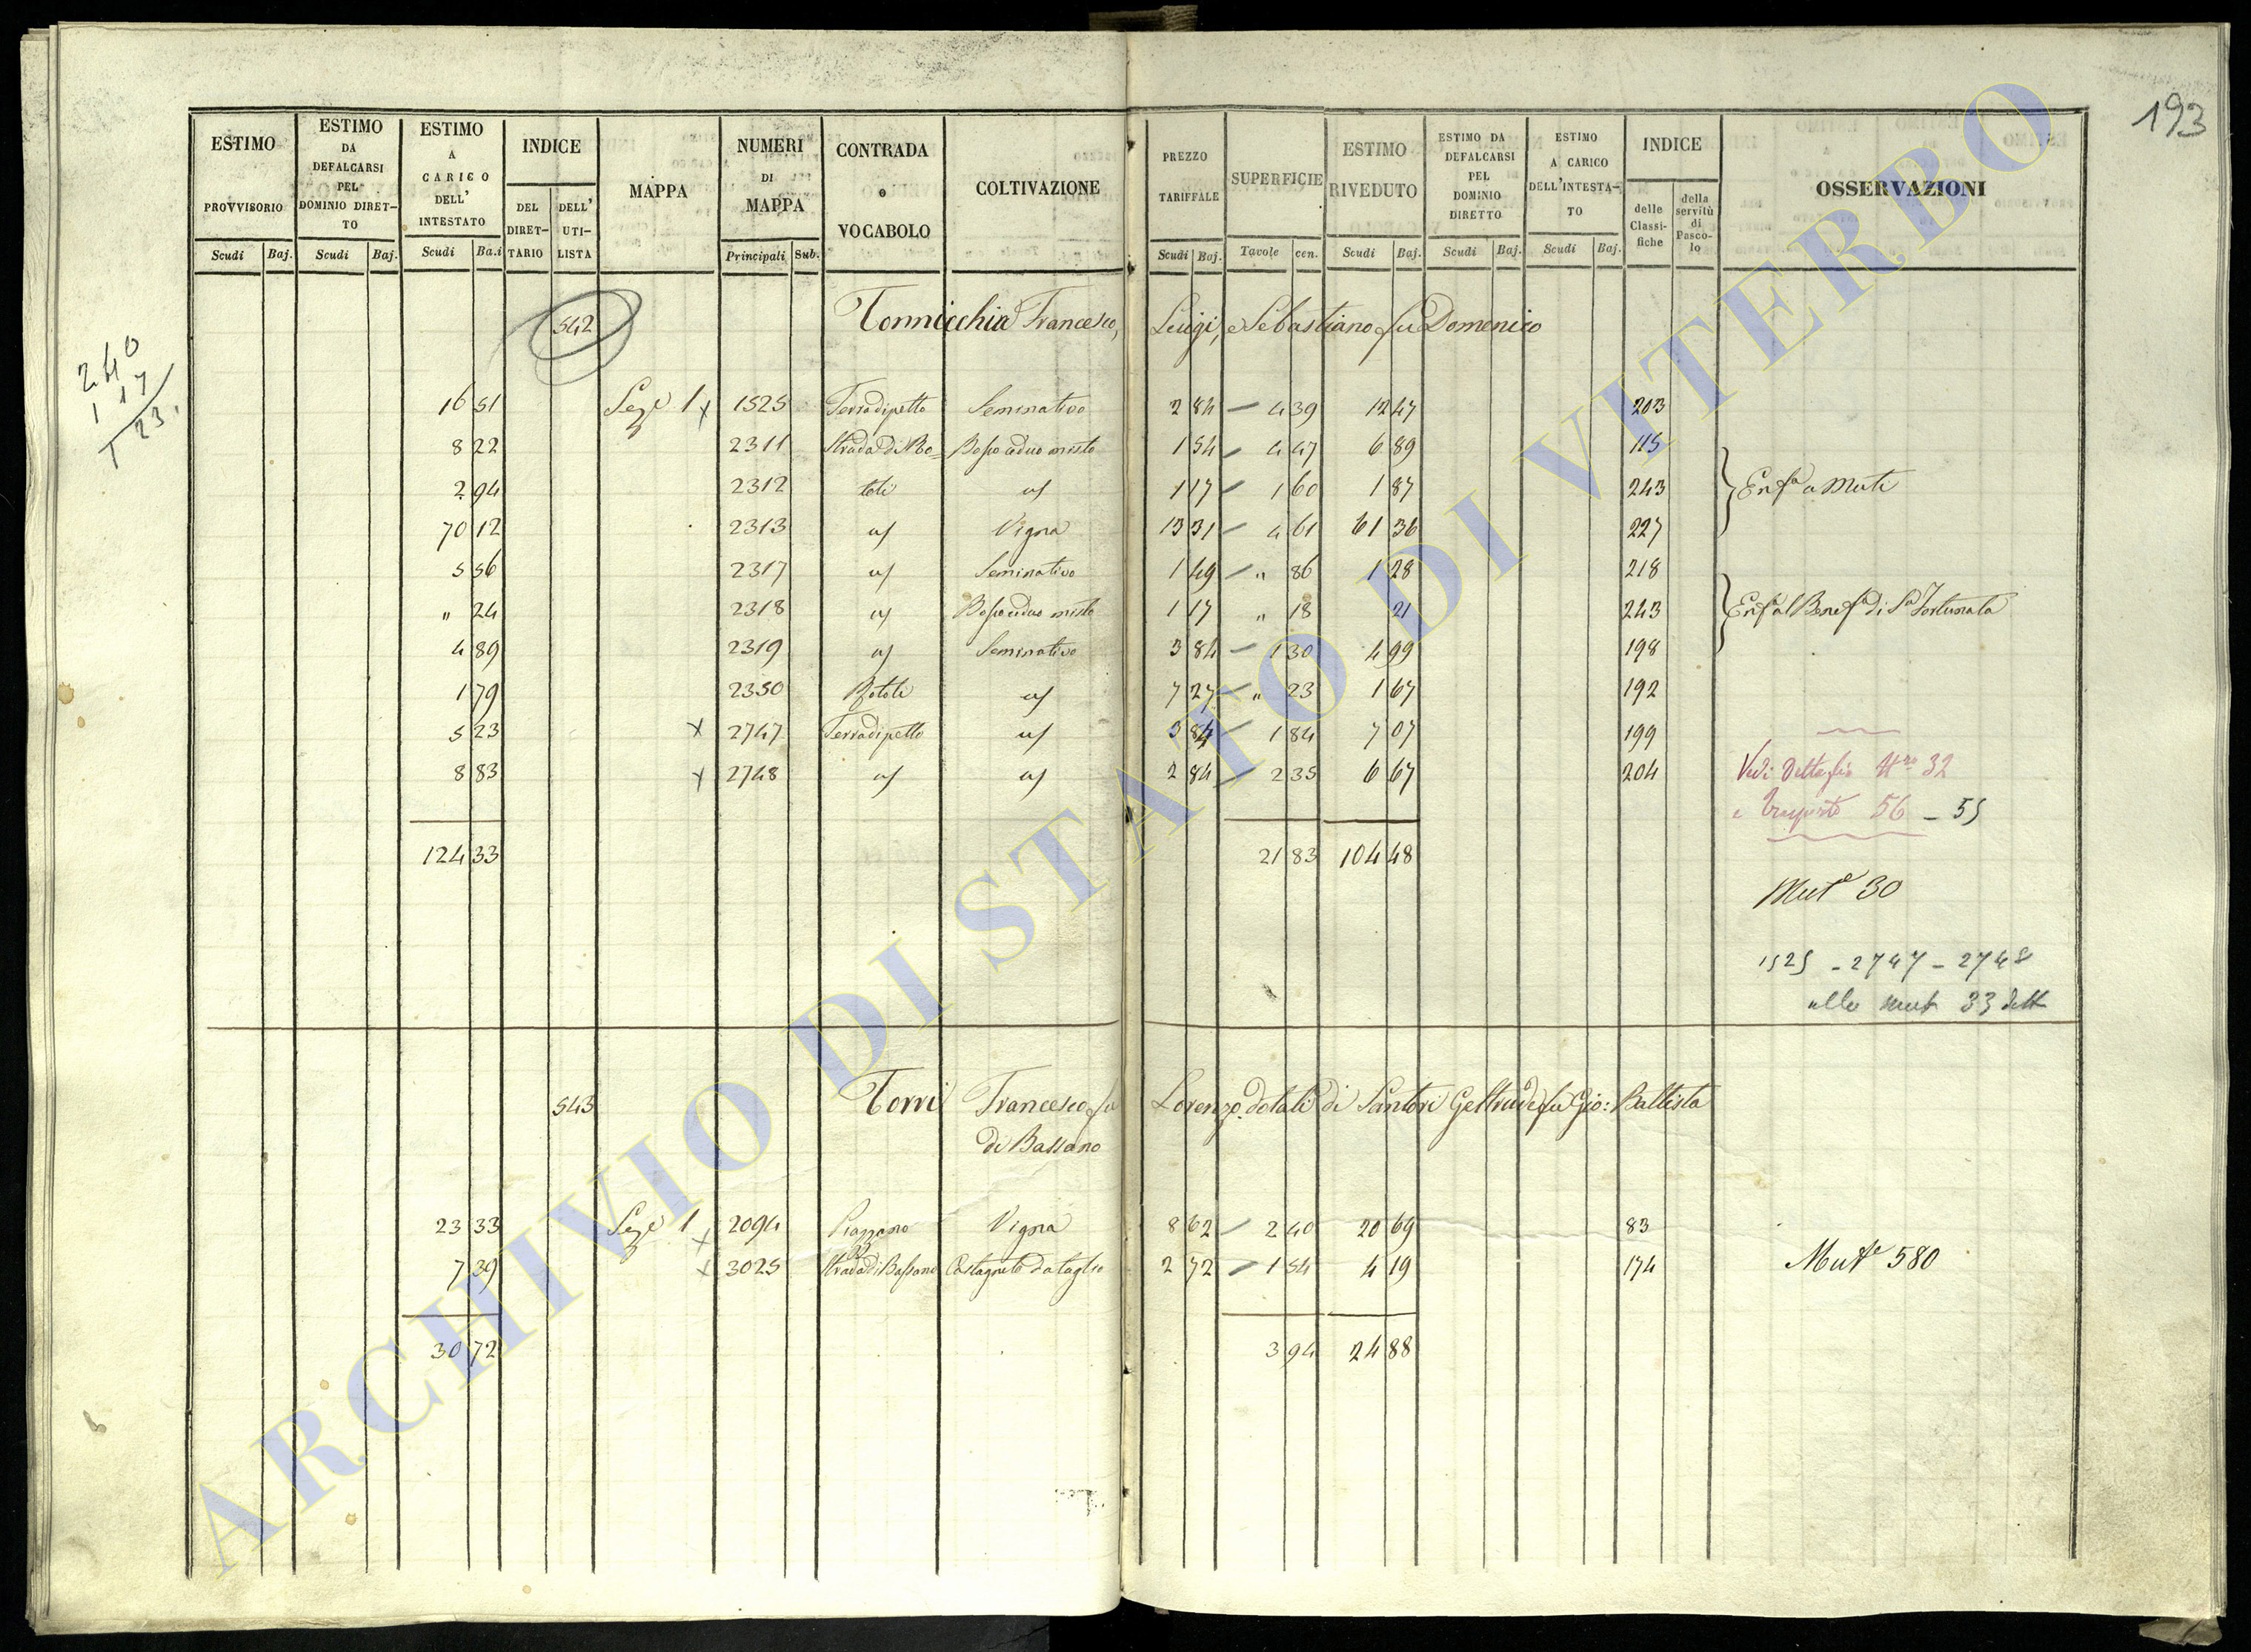 193
ESTIMO PROVVISORIO
ESTIMO DA DEFALCARSI PEL DOMINIO DIRET-TO
ESTIMO A CARICO DELL' INTESTATO
INDICE
DEL DIRET-TARIO
DELL' UTI-LISTA
MAPPA
NUMERI DI MAPPA
CONTRADA o VOCABOLO
COLTIVAZIONE
PREZZO TARIFFALE
SUPERFICIE
ESTIMO RIVEDUTO
ESTIMO DA DEFALCARSI PEL DOMINIO DIRETTO
ESTIMO A CARICO DELL'INTESTA-TO
INDICE
delle Classi-fiche
della servitù di Pasco-lo
OSSERVAZIONI
Scudi Baj. Scudi Baj. Scudi Ba.i Principali Sub. Scudi Baj. Tavole cen. Scudi Baj. Scudi Baj. Scudi Baj.
542 Tonnicchia Francesco, Luigi, e Sebastiano fu Domenico
240
117
123
16 51 Seze 1 x 1525 Terradipetto Seminativo 2 84 4 39 12 47 203
8 22 2311 Strada di Mo= Bosco ceduo misto 1 54 4 47 6 89 115
2 94 2312 toli us 1 17 1 60 1 87 243 Enfa a Muti
70 12 2313 us Vigna 13 31 4 61 61 36 227
5 56 2317 us Seminativo 1 49 " 86 1 28 218
" 24 2318 us Bosco ceduo misto 1 17 " 18 21 243 Enfa al Benefo di Sa Fortunata
4 89 2319 us Seminativo 3 84 1 30 4 99 198
1 79 2350 us 7 27 " 23 1 67 192
5 23 x 2747 Terradipetto us 3 84 1 84 7 07 199
8 83 x 2748 us us 2 84 2 35 6 67 204
Vedi Dettaglio No 32
e Trasporto 56 - 55
124 33 21 83 104 48
Mute 30
1525 - 2747 - 2748
alla mut 33 dett
543 Torri Francesco fu Lorenzo dotali di Santori Geltrude fu Gio: Battista
di Bassano
23 33 Seze 1 x 2094 Piazzano Vigna 8 62 2 40 20 69 83
7 39 x 3025 Strada di Bassano Castagneto da taglio 2 72 1 54 4 19 174 Mute 580
30 72 3 94 24 88
ARCHIVIO DI STATO DI VITERBO